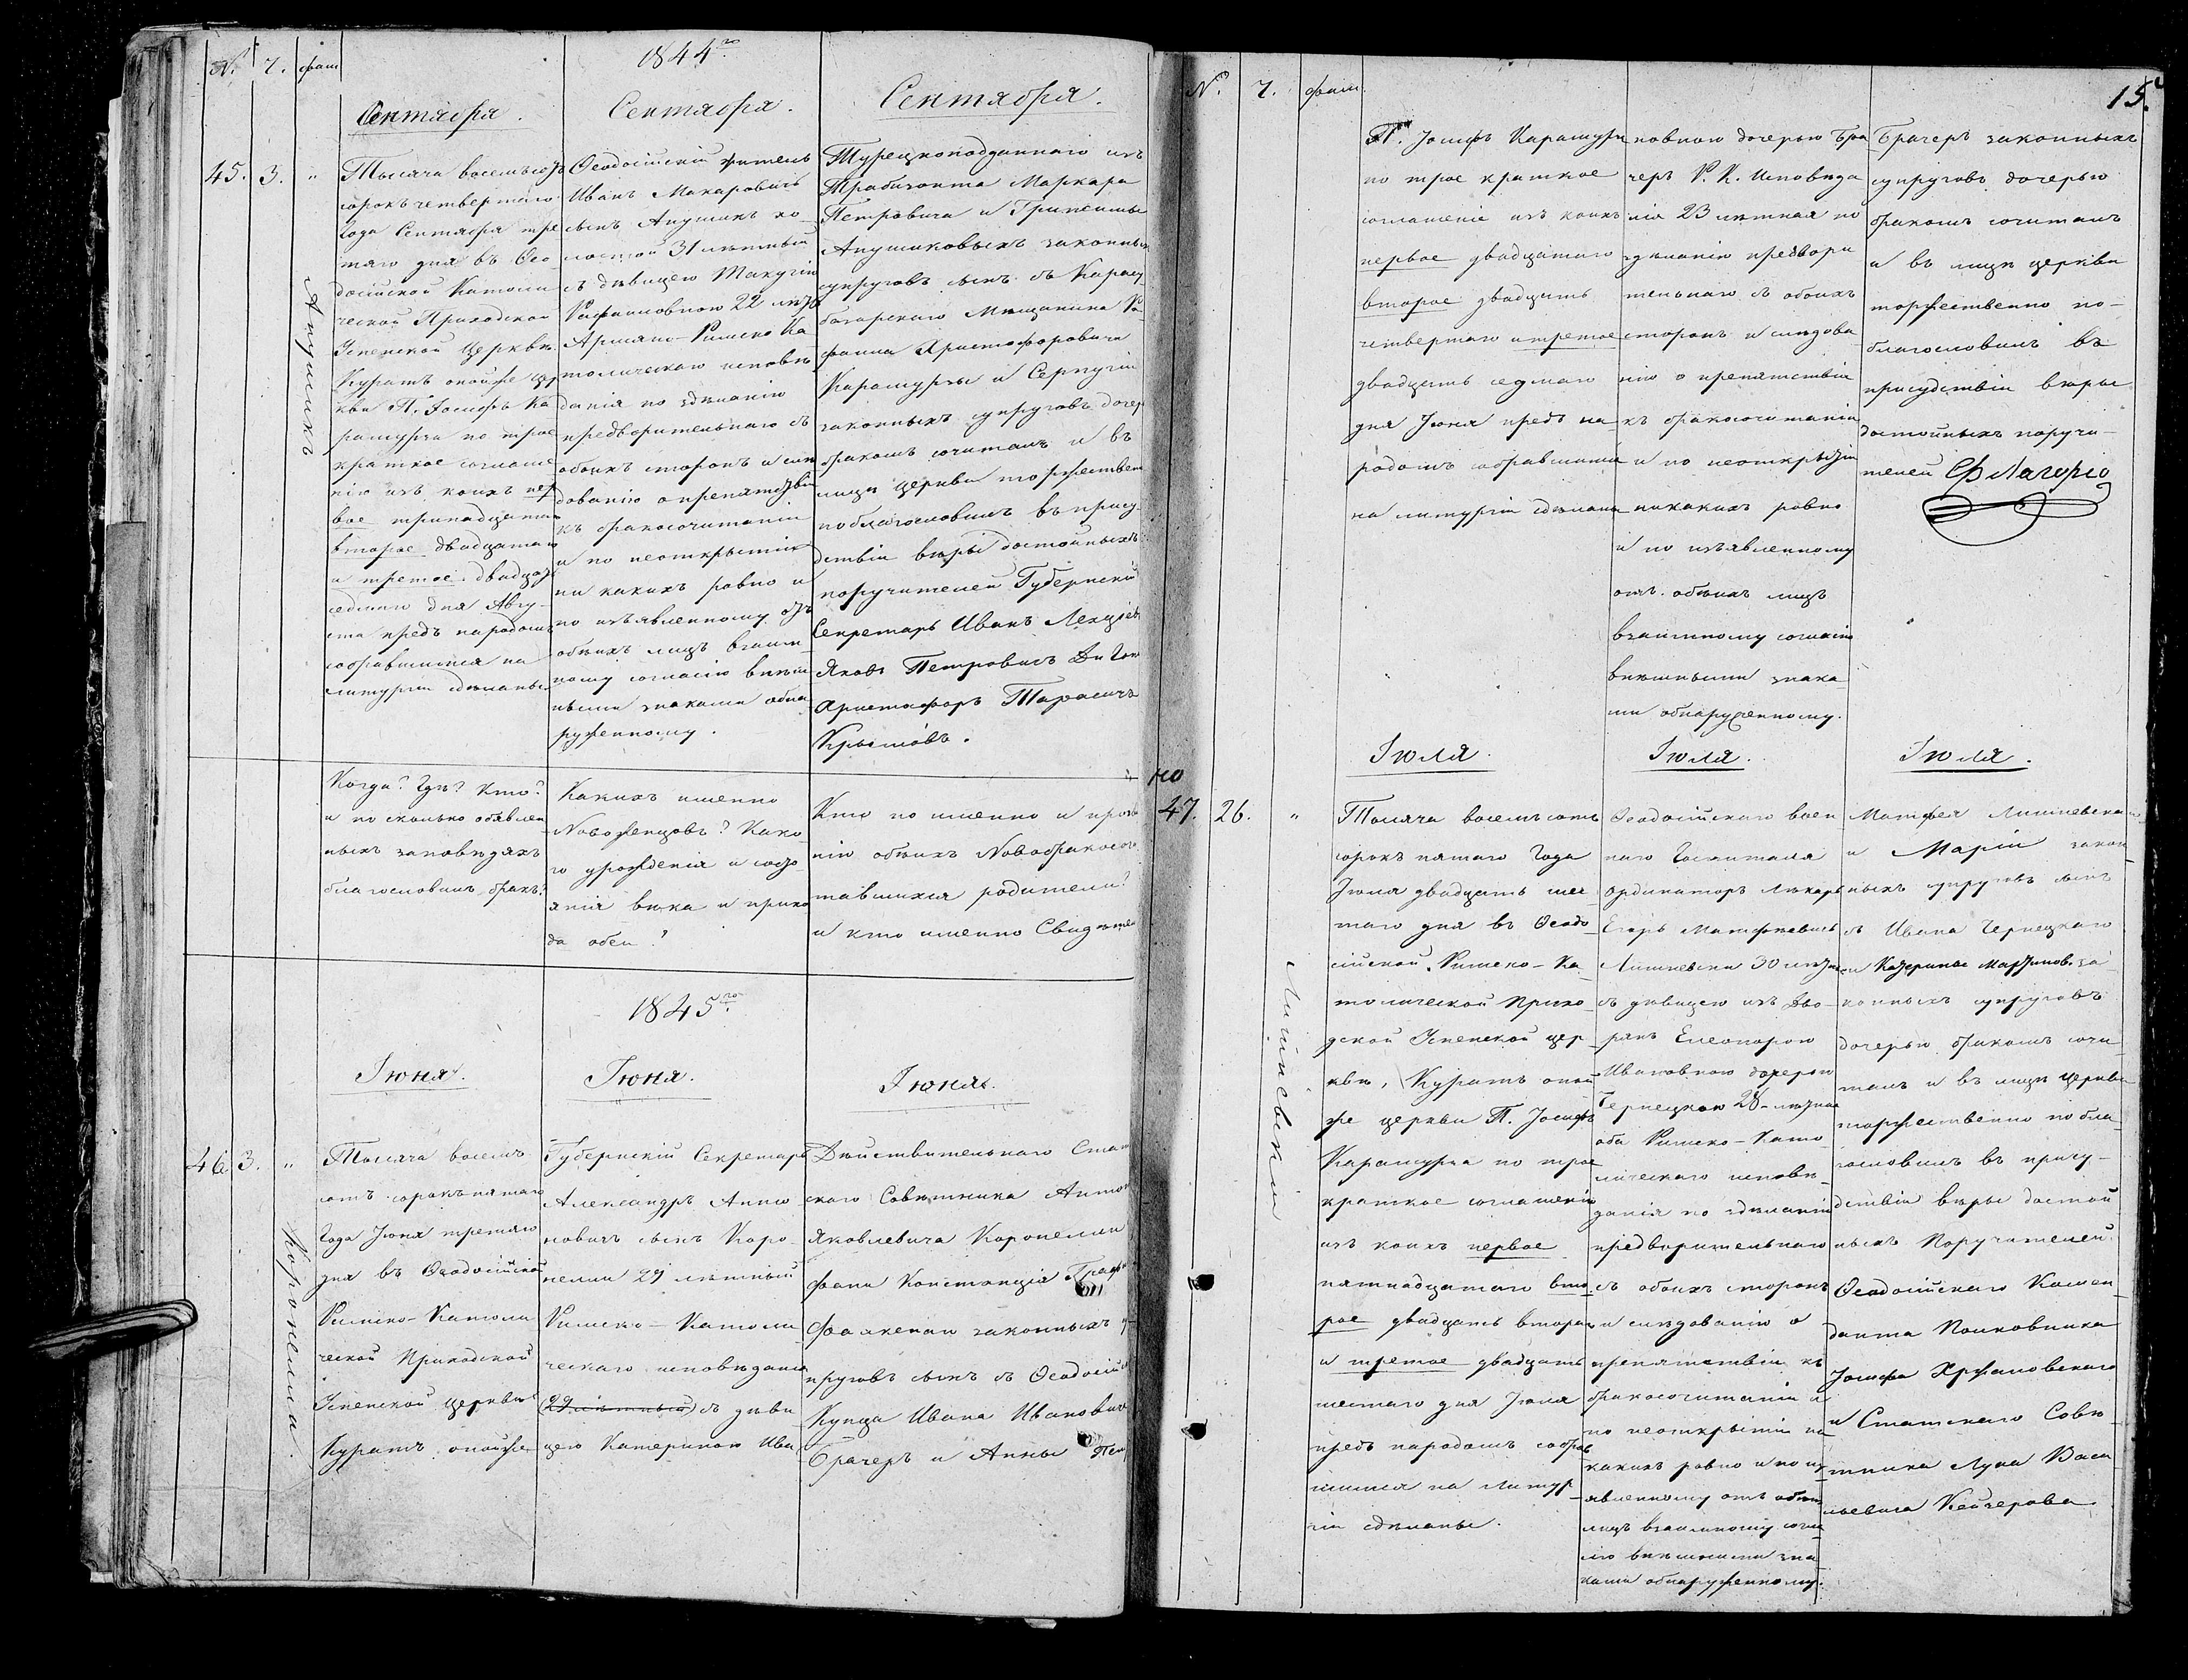 №. 7. фам
1844го
Сентября.
45. 3. „
Апушикъ
Тысяча восемьсотъ
сорокъ четвертаго
года Сентября тре
тяго дня въ Ѳео-
досійской Католи
ческой Приходской
Успенской Церквѣ.
Куратъ онойже цер
кви П. Іосифъ Ка
рамурза по трое
краткое соглаше
ніе изъ коихъ пер
вое тринадцатаго
второе двадцатаго
и третое двадцать
седмаго дня Авгу-
ста предъ народомъ
собравшимся на
литургіи сдѣланы
Сентября.
Ѳеодосійскій житель
Иванъ Макаровичъ
сынъ Апушикъ хо-
лостой 31 лѣтный
съ дѣвицею Такугіи
Рафаиловною 22 лѣтъ
Армяно-Римско Ка
толическаго исповѣ
данія по здѣланію
предворительнаго съ
обоихъ сторонъ и слѣ
дованію о препятствіи
къ бракосочитанію
и по неоткрытію
ни какихъ равно и
по изъявленному отъ
обѣихъ лицъ взаим-
ному согласію внѣш
ными знаками обна
руженному.
Сентября.
Турецкоподданнаго изъ
Трабизонта Маркара
Петровича и Грипсимы
Апушиковыхъ законныхъ
супруговъ сынъ съ Карасу
базарскаго Мѣщанина Ра-
фаила Христофоровича
Карамурзы и Серпугіи
законныхъ супруговъ дочер
бракомъ сочиталъ и въ
лицѣ церкви торжествен
но благословилъ въ прису
дствіи вѣры достойныхъ
поручителей Губернскій
Секретарь Иванъ
Яковъ Петровичъ
Христофоръ Тарасичъ
Крымовъ.
Когда? Гдѣ? Кто?
и по сколько объявлен
ныхъ заповѣдяхъ
благословилъ бракъ?
Какихъ именно
Новоженцовъ? Како
го урожденія и состо
янія вѣка и прихо
да обеи?
Кто по имению и прозва
нію обѣихъ Новобракосоче
тавшихся родители?
и кто именно Свидѣтел
1845го.
Іюня.
46. 3. „
Коронелли.
Тысяча восемь
сотъ сорокъ пятаго
Года Іюня третяго
дня въ Ѳеодосійской
Римско-Католи
ческой Приходской
Успенской церквѣ
Куратъ онойже
Іюня.
Губернскій Секретарь
Александръ Анто
новичъ сынъ Коро-
нелли 29 лѣтный
Римско-Католи
ческаго исповѣданія
(29 лѣтный) съ дѣви
цею Катериною Ива
Іюня.
Дѣйствительнаго Стат
скаго Совѣтника Антон
Яковлевича Коронелли
фани Констанція Граф
законныхъ су
пруговъ сынъ съ Ѳеодосійск
Купца Ивана Ивановича
Брачеръ и Анны Пет
№. 7. фам.
15.
П. Іосифъ Карамурза
по трое краткое
соглашеніе изъ коихъ
первое двадцатаго
второе двадцать
четвертаго и третое
двадцать седмаго
дня Іюня предъ на-
родомъ собравшимся
на литургіи сдѣланы
новною дочерью Бра
черъ Р. К. Исповѣда
нія 23 лѣтная по
здѣланію предвори
тельнаго съ обоихъ
сторонъ и слѣдова
нію о препятствіи
къ бракосочитанію
и по неоткрытію
никакихъ равно
и по изъявленному
отъ обѣихъ лицъ
взаимному согласію
внѣшными знака-
ми обнаруженному.
Брачеръ законныхъ
супруговъ дочерью
бракомъ сочиталъ
и въ лицѣ церкви
торжественно по-
благословилъ въ
присудствіи вѣры
достойныхъ поручи-
телей Ф Лагоріо
Іюля.
но
47. 26. „
Лишневскій
Тысяча восемьсотъ
сорокъ пятаго Года
Іюля двадцать шес
таго дня въ Ѳеодо
сійской Римско-Ка
толической Прихо
дской Успенской цер
кви, Куратъ оной
же церкви П. Іосифъ
Карамурза по трое
краткое соглашеніе
изъ коихъ первое
пятнадцатаго вто
рое двадцать втораго
и третое двадцать
шестаго дня Іюля
предъ народомъ собрав
шимся на Литур
гіи сдѣланы.
Іюля.
Ѳеодосійскаго воен
наго Госпиталя
Ординаторъ Лѣкарь
Егоръ Матфѣевичъ
Лишневскій 30 лѣтный
съ дѣвицею изъ Дво-
рянъ Елеонорою
Ивановною дочерью
Чернецкою 28-лѣтная
оба Римско-Като
лическаго исповѣ
данія по здѣланію
предворительнаго
съ обоихъ сторонъ
и слѣдованію о
препятствіи къ
бракосочитанію и
по неоткрытію ни
какихъ равно и по из
явленному отъ обѣихъ
лицъ взаимному согла
сію внѣшными зна
ками обнаруженному.
Іюля.
Матфея Лишневскаго
и Маріи закон
ныхъ супруговъ сынъ
съ Ивана Чернецкаго
и Катерины Мартинов. за
конныхъ супруговъ
дочерью бракомъ сочи-
талъ и въ лицѣ церкви
торжественно по бла
гословилъ въ прису-
дствіи вѣры достой
ныхъ Поручителей.
Ѳеодосійскаго Комен
данта Полковника
Іосифа Хржановскаго
и Статскаго Совѣ
тника Лука Васи
льевича Кейчерова